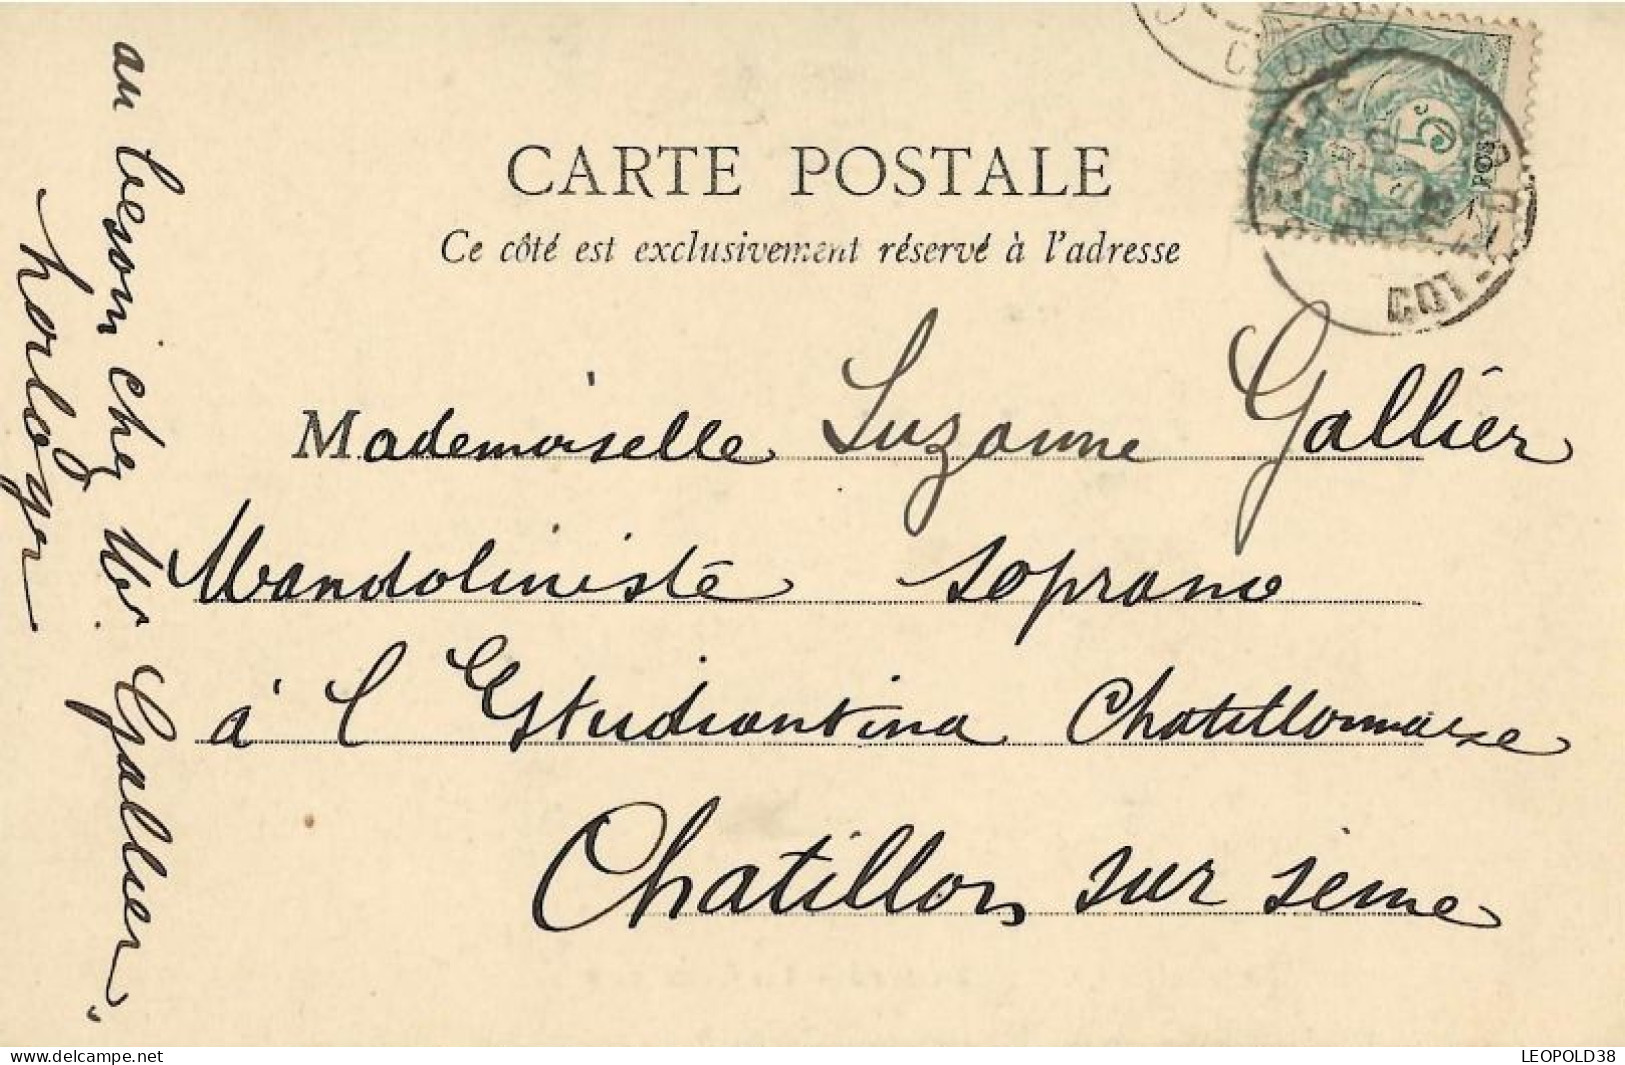 CARTE POSTALE
Ce côté est exclusivement réservé à l'adresse
Mademoiselle Suzanne Gallier
Mandoliniste soprano
à l'Estudiantina Chatillonnaise
Chatillon sur seine
au besoin chez Mr Gallier
horloger
5c
POSTES
COTE-D'OR
www.delcampe.net
LEOPOLD38